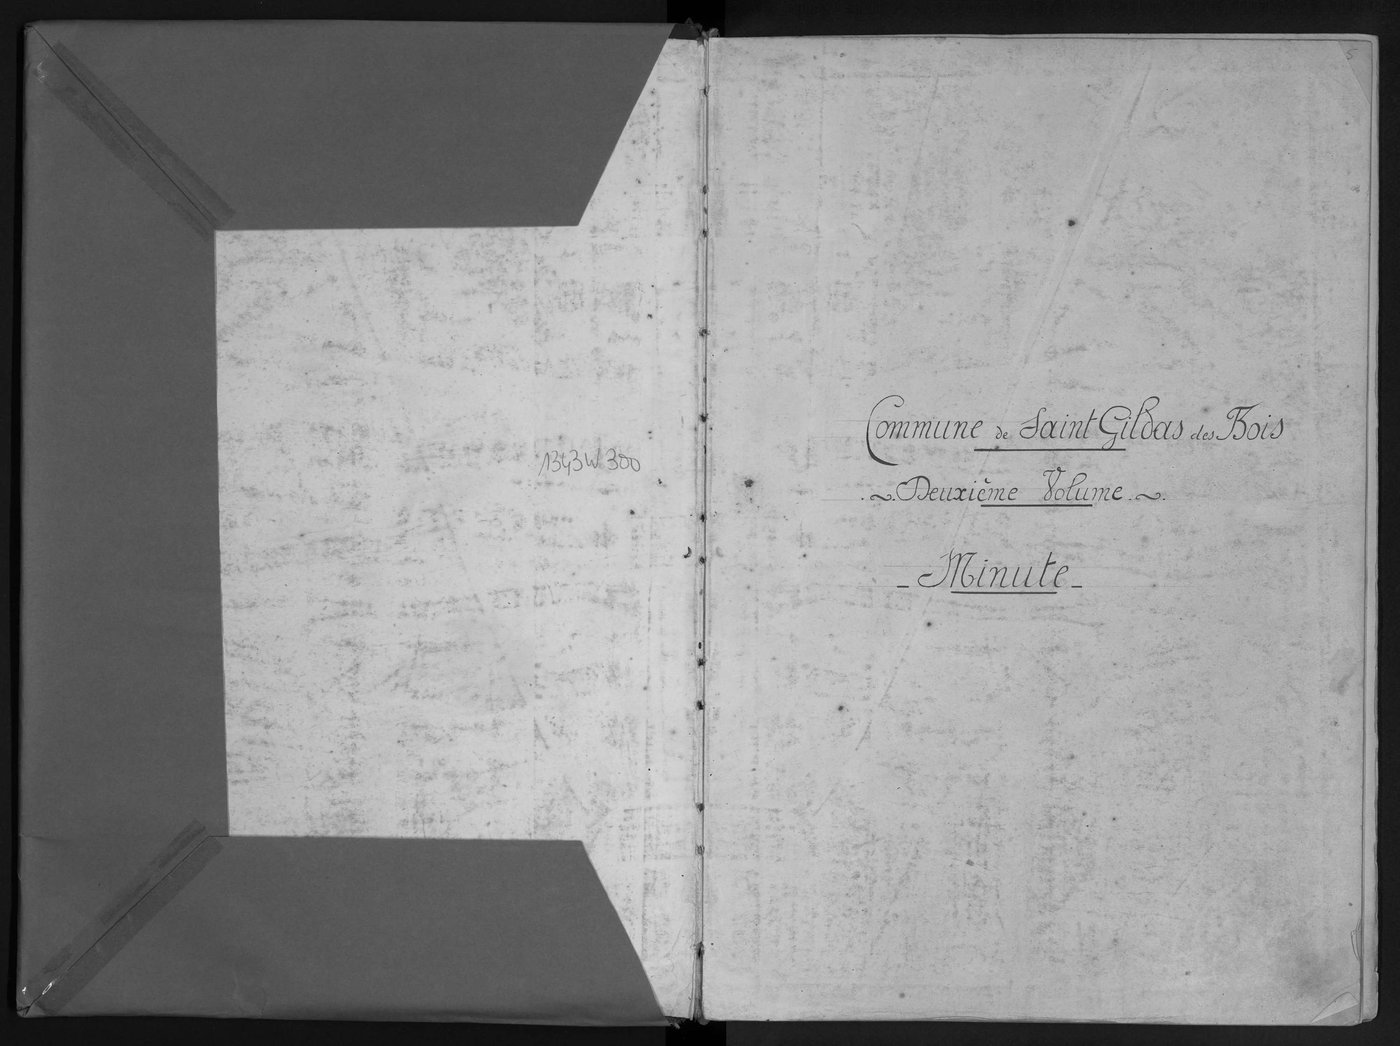 1343 W 300
5
Commune de Saint Gildas des Bois
. ~ . Deuxième Volume . ~ .
- Minute -